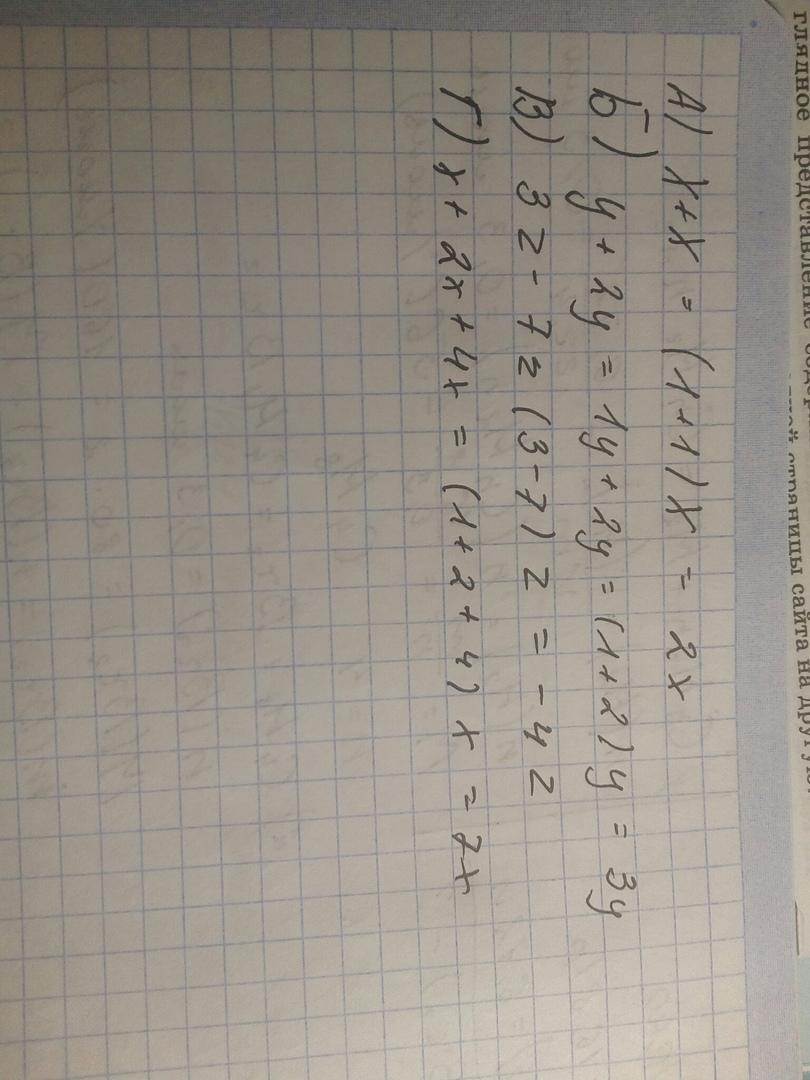 глядное представление
одной страницы сайта на другую.
А) x+x = (1+1)x = 2x
Б) y + 2y = 1y + 2y = (1+2)y = 3y
В) 3z - 7z (3-7) z = -4z
Г) x + 2x + 4x = (1+2+4) x = 7x